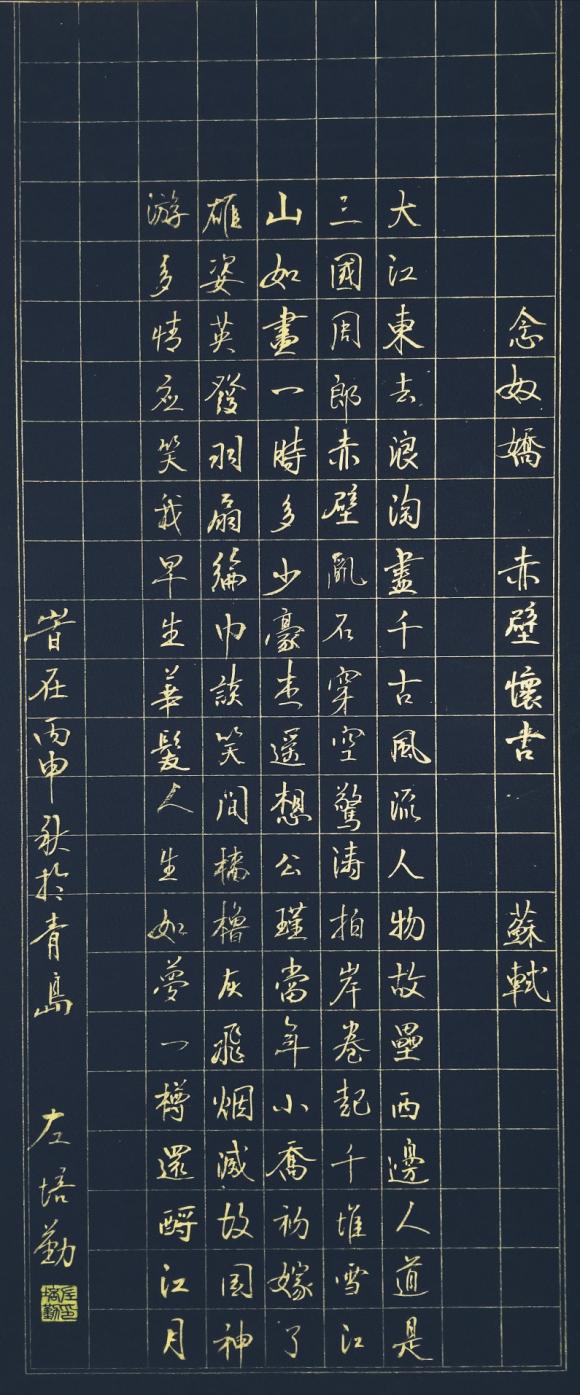 念奴嬌 赤壁懷古 蘇軾
大江東去浪淘盡千古風流人物故壘西邊人道是
三國周郎赤壁亂石穿空驚濤拍岸卷起千堆雪江
山如畫一時多少豪杰遥想公瑾當年小喬初嫁了
雄姿英發羽扇綸巾談笑間檣櫓灰飛烟滅故国神
游多情应笑我早生華髮人生如夢一樽還酹江月
旹在丙申秋於青島 左培勤